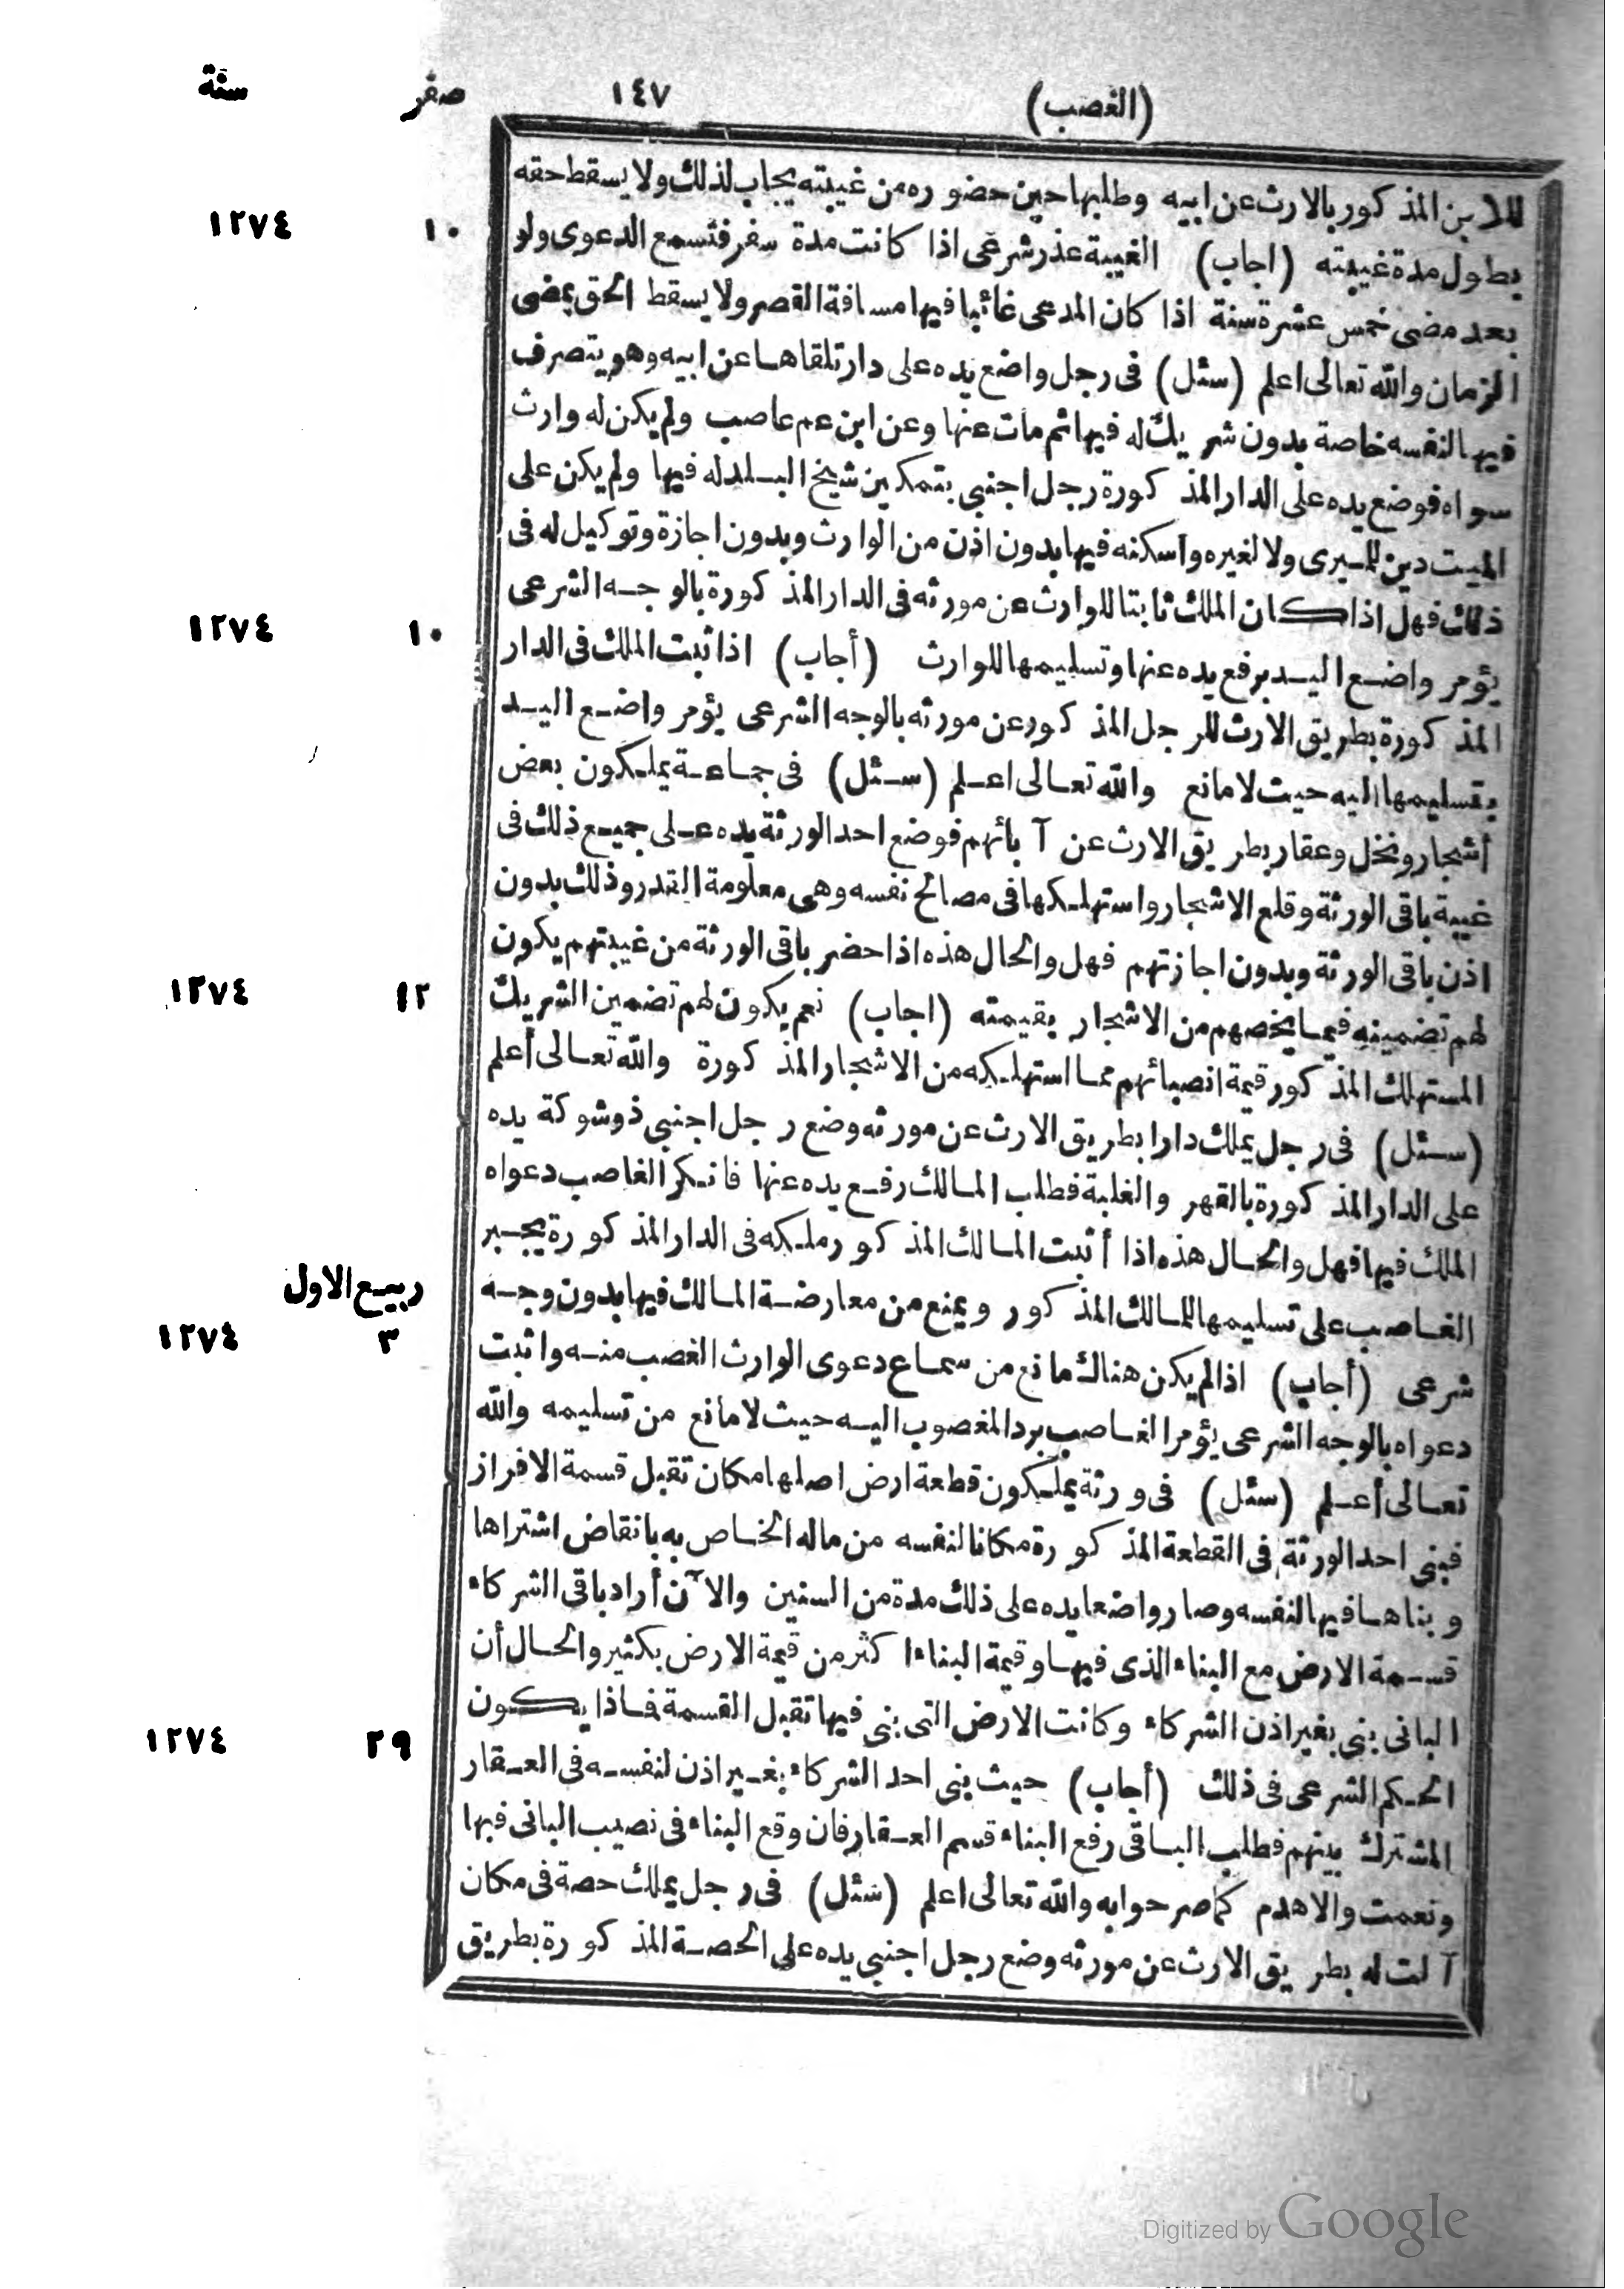 (الغصب) ١٤٧ صفر سنة
للابن المذكور بالارث عن ابيه وطلبها حين حضوره من غيبته يجاب لذلك ولا يسقط حقه
بطول مدة غيبته (اجاب) الغيبة عذر شرعى اذا كانت مدة سفر فتسمع الدعوى ولو ١٠ ١٢٧٤
بعد مضى خمس عشرة سنة اذا كان المدعى غائبا فيها مسافة القصر ولا يسقط الحق بمضى
الزمان والله تعالى اعلم (سئل) فى رجل واضع يده على دار تلقاها عن ابيه وهو يتصرف
فيها لنفسه خاصة بدون شريك له فيها ثم مات عنها وعن ابن عم عاصب ولم يكن له وارث
سواه فوضع يده على الدار المذكورة رجل اجنبى بتمكين شيخ البلد له فيها ولم يكن على
الميت دين للميرى ولا لغيره واسكنه فيها بدون اذن من الوارث وبدون اجازة وتوكيل له فى
ذلك فهل اذا كان الملك ثابتا للوارث عن مورثه فى الدار المذكورة بالوجه الشرعى
يؤمر واضع اليد برفع يده عنها وتسليمها للوارث (أجاب) اذا ثبت الملك فى الدار ١٠ ١٢٧٤
المذكورة بطريق الارث للرجل المذكور عن مورثه بالوجه الشرعى يؤمر واضع اليد
بتسليمها اليه حيث لا مانع والله تعالى اعلم (سئل) فى جماعة يملكون بعض
أشجار ونخل وعقار بطريق الارث عن آبائهم فوضع احد الورثة يده على جميع ذلك فى
غيبة باقى الورثة وقلع الاشجار واستهلكها فى مصالح نفسه وهى معلومة القدر وذلك بدون
اذن باقى الورثة وبدون اجازتهم فهل والحال هذه اذا حضر باقى الورثة من غيبتهم يكون
لهم تضمينه فيما يخصهم من الاشجار بقيمته (اجاب) نعم يكون لهم تضمين الشريك ١٢ ١٢٧٤
المستهلك المذكور قيمة انصبائهم مما استهلكه من الاشجار المذكورة والله تعالى أعلم
(سئل) فى رجل يملك دارا بطريق الارث عن مورثه وضع رجل اجنبى ذو شوكة يده
على الدار المذكورة بالقهر والغلبة فطلب المالك رفع يده عنها فانكر الغاصب دعواه
الملك فيها فهل والحال هذه اذا أثبت المالك المذكور ملكه فى الدار المذكورة يجبر
الغاصب على تسليمها للمالك المذكور ويمنع من معارضة المالك فيها بدون وجه ربيع الاول
شرعى (أجاب) اذا لم يكن هناك مانع من سماع دعوى الوارث الغصب منه واثبت ٣ ١٢٧٤
دعواه بالوجه الشرعى يؤمر الغاصب برد المغصوب اليه حيث لا مانع من تسليمه والله
تعالى أعلم (سئل) فى ورثة يملكون قطعة ارض اصلها مكان تقبل قسمة الافراز
فبنى احد الورثة فى القطعة المذكورة مكانا لنفسه من ماله الخاص به بانقاض اشتراها
وبناها فيها لنفسه وصار واضعا يده على ذلك مدة من السنين والآن أراد باقى الشركاء
قسمة الارض مع البناء الذى فيها وقيمة البناء اكثر من قيمة الارض بكثير والحال أن
البانى بنى بغير اذن الشركاء وكانت الارض التى بنى فيها تقبل القسمة فماذا يكون
الحكم الشرعى فى ذلك (أجاب) حيث بنى احد الشركاء بغير اذن لنفسه فى العقار ٢٩ ١٢٧٤
المشترك بينهم فطلب الباقى رفع البناء قسم العقار فان وقع البناء فى نصيب البانى فبها
ونعمت والا هدم كما صرحوا به والله تعالى اعلم (سئل) فى رجل يملك حصة فى مكان
آلت له بطريق الارث عن مورثه وضع رجل اجنبى يده على الحصة المذكورة بطريق
Digitized by Google